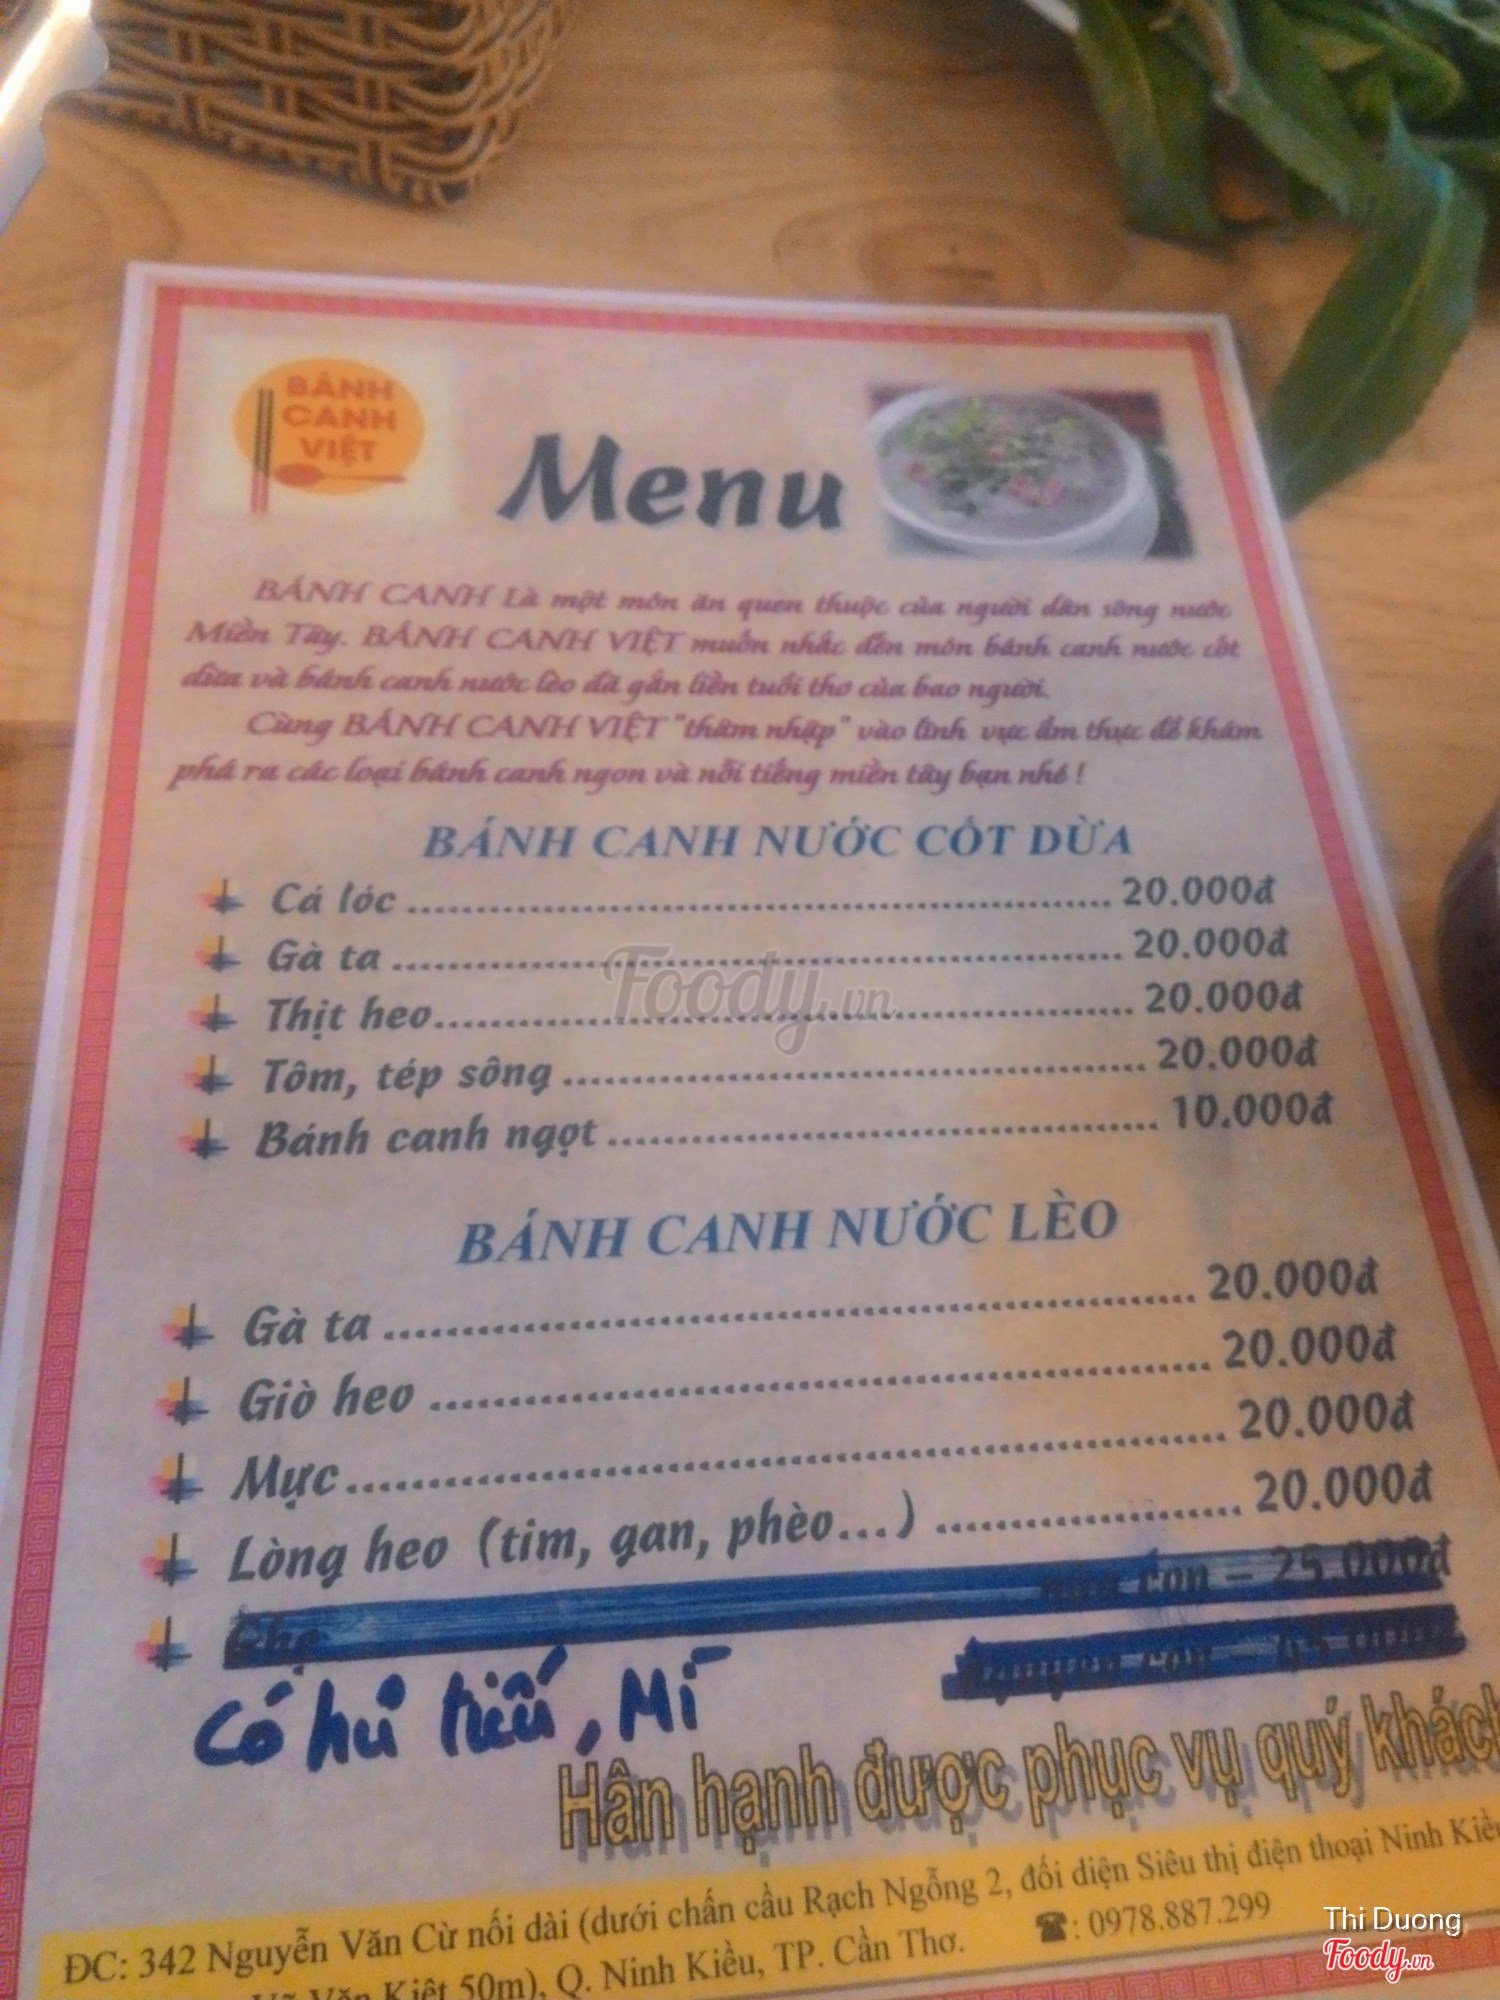 BÁNH
CANH
VIỆT
Menu
BÁNH CANH Là một món ăn quen thuộc của người dân sông nước
Miền Tây. BÁNH CANH VIỆT muốn nhắc đến món bánh canh nước cốt
dừa và bánh canh nước lèo đã gắn liền tuổi thơ của bao người.
Cùng BÁNH CANH VIỆT "thâm nhập" vào lĩnh vực ẩm thực để khám
phá ra các loại bánh canh ngon và nổi tiếng miền tây bạn nhé !
BÁNH CANH NƯỚC CỐT DỪA
Cá lóc ........ 20.000đ
Gà ta ........ 20.000đ
Thịt heo ........ 20.000đ
Tôm, tép sông ........ 20.000đ
Bánh canh ngọt ........ 10.000đ
Foody.vn
BÁNH CANH NƯỚC LÈO
Gà ta ........ 20.000đ
Giò heo ........ 20.000đ
Mực ........ 20.000đ
Lòng heo (tim, gan, phèo...) ........ 20.000đ
Ghẹ nửa con – 25.000đ
Nguyên con – 45.000đ
Có hủ tiếu, Mì
Hân hạnh được phục vụ quý khách
ĐC: 342 Nguyễn Văn Cừ nối dài (dưới chấn cầu Rạch Ngỗng 2, đối diện Siêu thị điện thoại Ninh Kiều
Võ Văn Kiệt 50m), Q. Ninh Kiều, TP. Cần Thơ. ☎: 0978.887.299
Thi Duong
Foody.vn